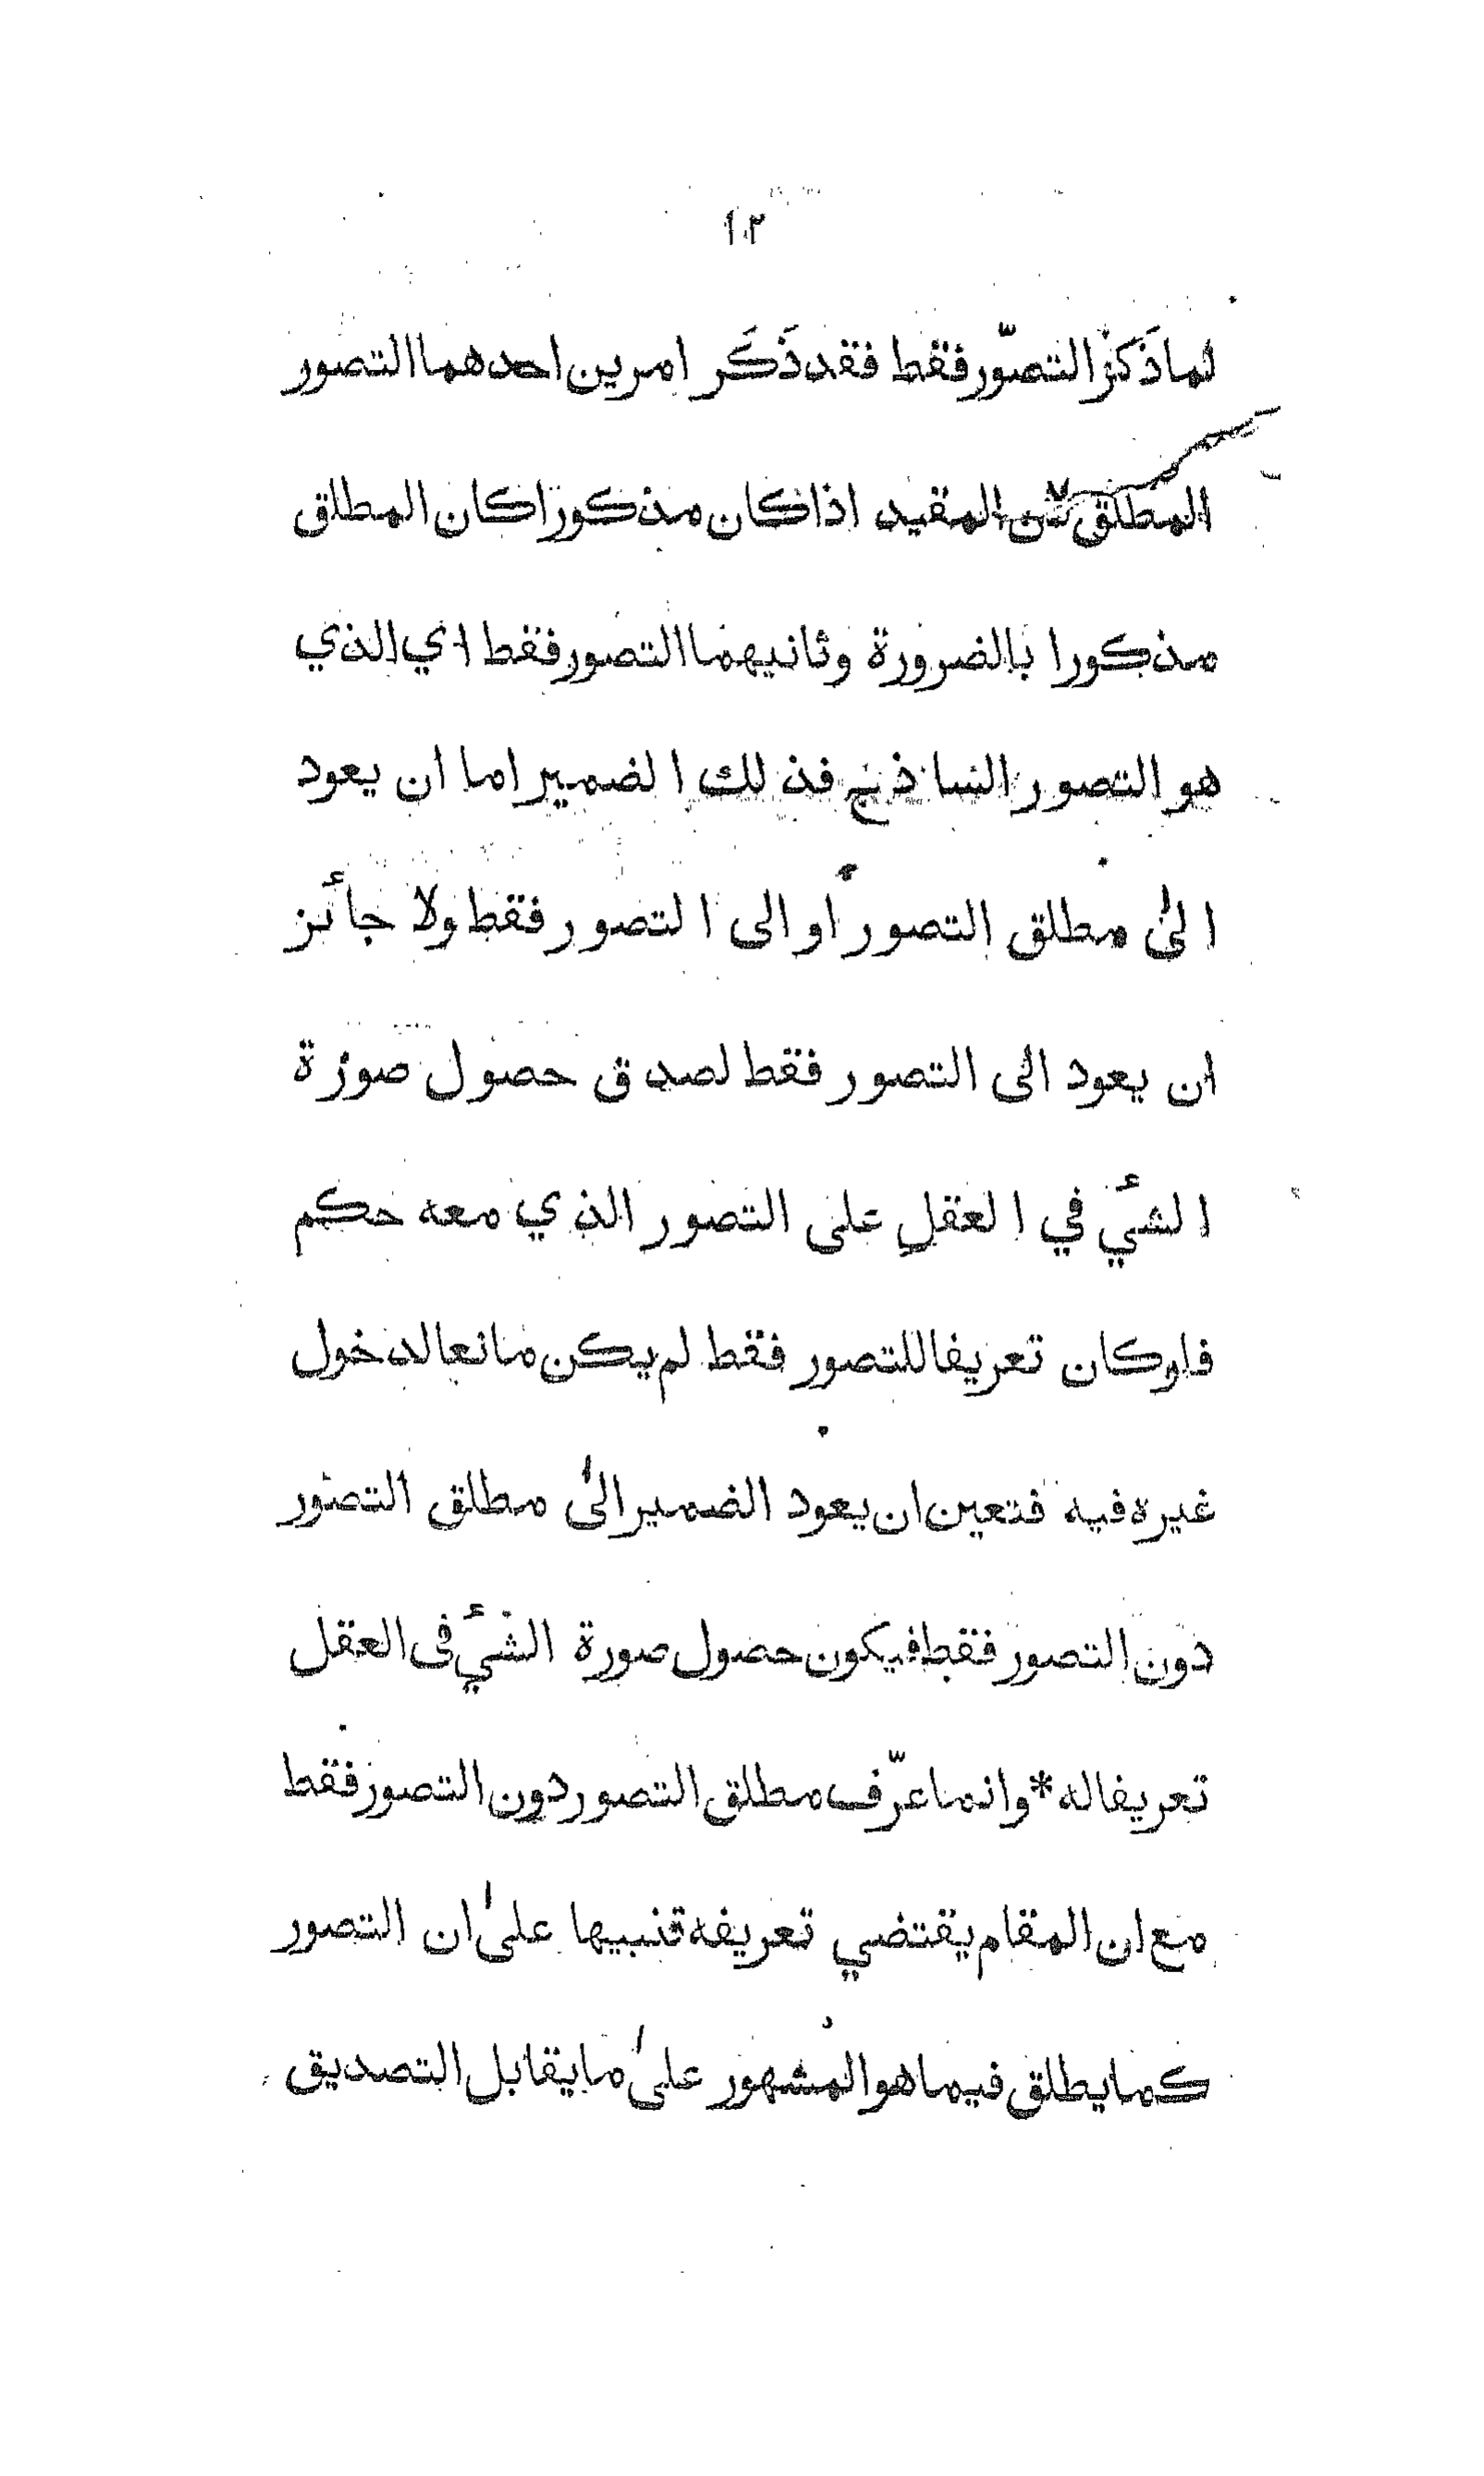 ١٢
لما ذَكَرَ التصوّر فقط فقد ذَكَر امرين احدهما التصور
المطلق لان المقيد اذا كان مذكورا كان المطلق
مذكورا بالضرورة وثانيهما التصور فقط اي الذي
هو التصور الساذج فذلك الضمير اما ان يعود
الىٰ مطلق التصور او الى التصور فقط ولا جائز
ان يعود الى التصور فقط لصدق حصول صورة
الشئ في العقل على التصور الذي معه حكم
فلوكان تعريفا للتصور فقط لم يكن مانعا لدخول
غيره فيه فتعين ان يعود الضمير الىٰ مطلق التصور
دون التصور فقط فيكون حصول صورة الشئ فى العقل
تعريفا له * وانما عرّف مطلق التصور دون التصور فقط
مع ان المقام يقتضي تعريفه تنبيها علىٰ ان التصور
كما يطلق فيما هو المشهور علىٰ ما يقابل التصديق